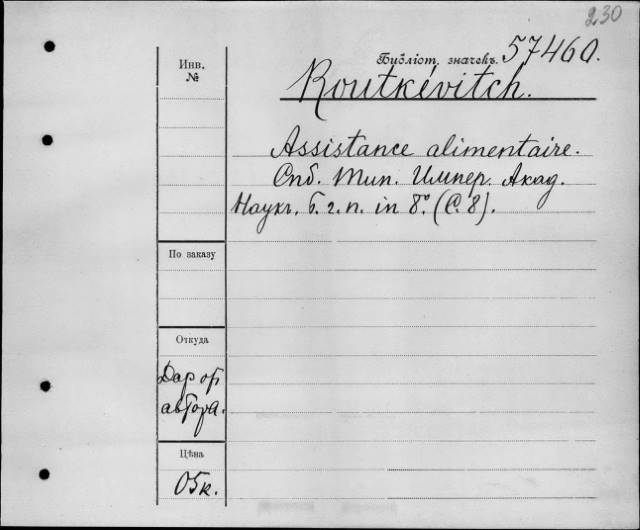 230
Инв.
№
Библіот. значекъ. 57460.
Routkévitch.
Assistance alimentaire.
Спб. Тип. Импер. Акад.
Наукъ. б. г. п. in 8°. (С. 8).
По заказу
Откуда
Дар от
автора.
Цѣна
05к.